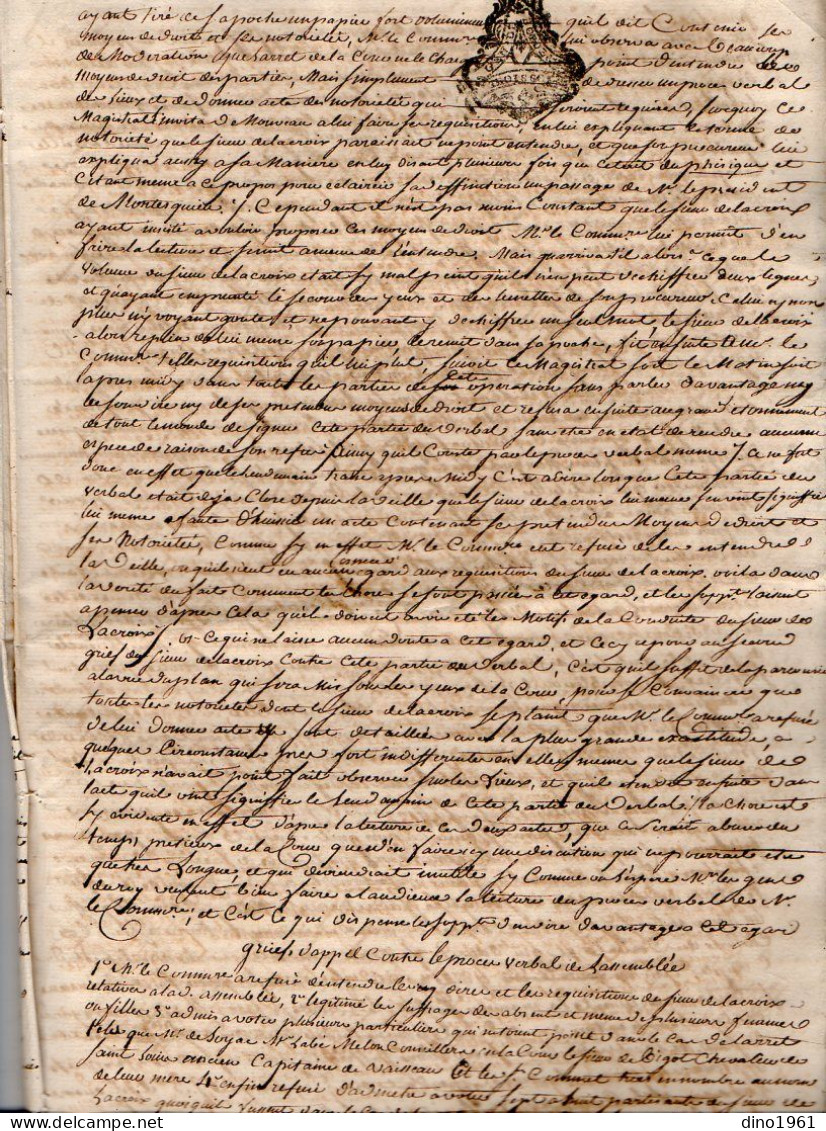 ayant tiré de sa poche un papier fort volumineux qu'il dit Contenir ses
moyens de droit et ses notorietés, Mr. le Commre lui observa avec beaucoup
de Moderation que l'arret de la Cour ne le Charge point d'entendre les
moyens de droit des parties, Mais simplement de dresser un proces verbal
des Lieux et de donner acte des notorietés qui seroient requises, surquoy ce
Magistrat invita de Nouveau a lui faire ses requisitions, en lui expliquant le terme de
notorieté que le sieur de Lacroix paraissait ne point entendre, et que son procureur lui
expliqua aussy a sa Maniere en luy disant plusieurs fois que c'etait du phisique et
Citant meme a ce propos pour eclaircir sa deffinition un passage de Mr. le president
de Montesquieu /. Cependant il n'est pas moins Constant que le sieur de lacroix
ayant insisté a vouloir proposer ces moyens de droit Mr. le Commre lui permit d'en
faire la lecture et finit a meme de l'entendre, Mais qu'arriva t'il alors, ce que le
volume du sieur de lacroix etait sy mal peint qu'il n'en peut dechiffrer deux lignes,
et qu'ayant emprunté le secours des yeux et des lunettes de son procureur, Celui cy non
plus n'y voyant goutes et ne pouvant y dechiffrer un seul mot, le sieur de lacroix
alors reprit de lui meme son papier le remit dans sa poche, fit ensuite a Mr. le
Commre telles requisitions qu'il luy plut, suivit ce Magistrat soit le Matin soit
l'apres midy dans toutes les parties de cete operation sans parler davantage ny
de son dire ny de ses pretendus moyens de droit et refusa ensuite au grand etonnement
de tout le monde de signer cete partie du Verbal sans etre en etat de rendre aucune
espece de raison de son refus ainsy qu'il Conste par le proces verbal meme /. Ce ne fut
donc en effet que le lendemain trois apres midy c'est a dire lorsque Cete partie du
verbal etait deja Close depuis la veille que le sieur de lacroix lui meme s'en vint signiffier
lui meme a faute d'huissier un acte Contenant ses pretendus Moyens de droit et
ses Notorietés, Comme sy en effet Mr. le Commre eut refusé de les entendre
la Veille, ou qu'il n'eut eu aucun egard aux requisitions du sieur de Lacroix. voila dans
la verité du fait Comment la Chose se sont passées a cet egard, et les suppts. laissent
a penser d'apres Cela quels doivent avoir eté les Motifs de la Conduite du sieur de
Lacroix /. or Ce qui ne laisse aucun doute a cet egard, et Cecy repond au second
grief du sieur de lacroix Contre Cete partie du Verbal, c'est qu'il suffit de la parcourir
a la vue du plan qui sera Mis sous les yeux de la Cour, pour se Convaincre que
toutes les notorietés dont le sieur de lacroix se plaint que Mr. le Commre a refusé
de lui donner acte y sont detaillées avec la plus grande exactitude, a
quelques Circonstances pres fort indifferentes en elles memes que le sieur de
Lacroix n'avait point fait observer sur les Lieux, et qu'il
l'acte qu'il vint signiffier le lendemain de Cete partie du Verbal / la Chose est
sy evidente en effet d'apres la lecture de ces deux actes, que ce seroit abuser du
temps precieux de la Cour que d'en faire icy une discution qui ne pourrait etre
que tres Longue et qui deviendrait inutile sy Comme on l'espere Mrs. les gens
du roy veulent bien faire a l'audience la lecture du proces verbal de Mr.
le Commre, et C'est ce qui dispense les suppts. d'en dire davantage a Cet egard
griefs d'appel Contre le proces verbal de L'assemblée
1° Mr. le Commre a refusé d'entendre les dires et les requisitions du sieur de lacroix
relatives a lad. assemblée, 2° legitimé les suffrages des absents et meme de plusieurs femmes
ou filles 3° admis a voter plusieurs particuliers qui n'etoient point dans le Cas de l'arret
tels que Mr. de Mr. l'abé Melon Conseiller en la Cour le sieur de Bigot Chevalier de
saint Louis ancien Capitaine de Vaisseau et le sr. Commet tres en nombre au nom
de leur mere 4° enfin refusé d'admetre a voter sept a huit partisans du sieur de
Lacroix quoiqu'il fussent dans le Cas de